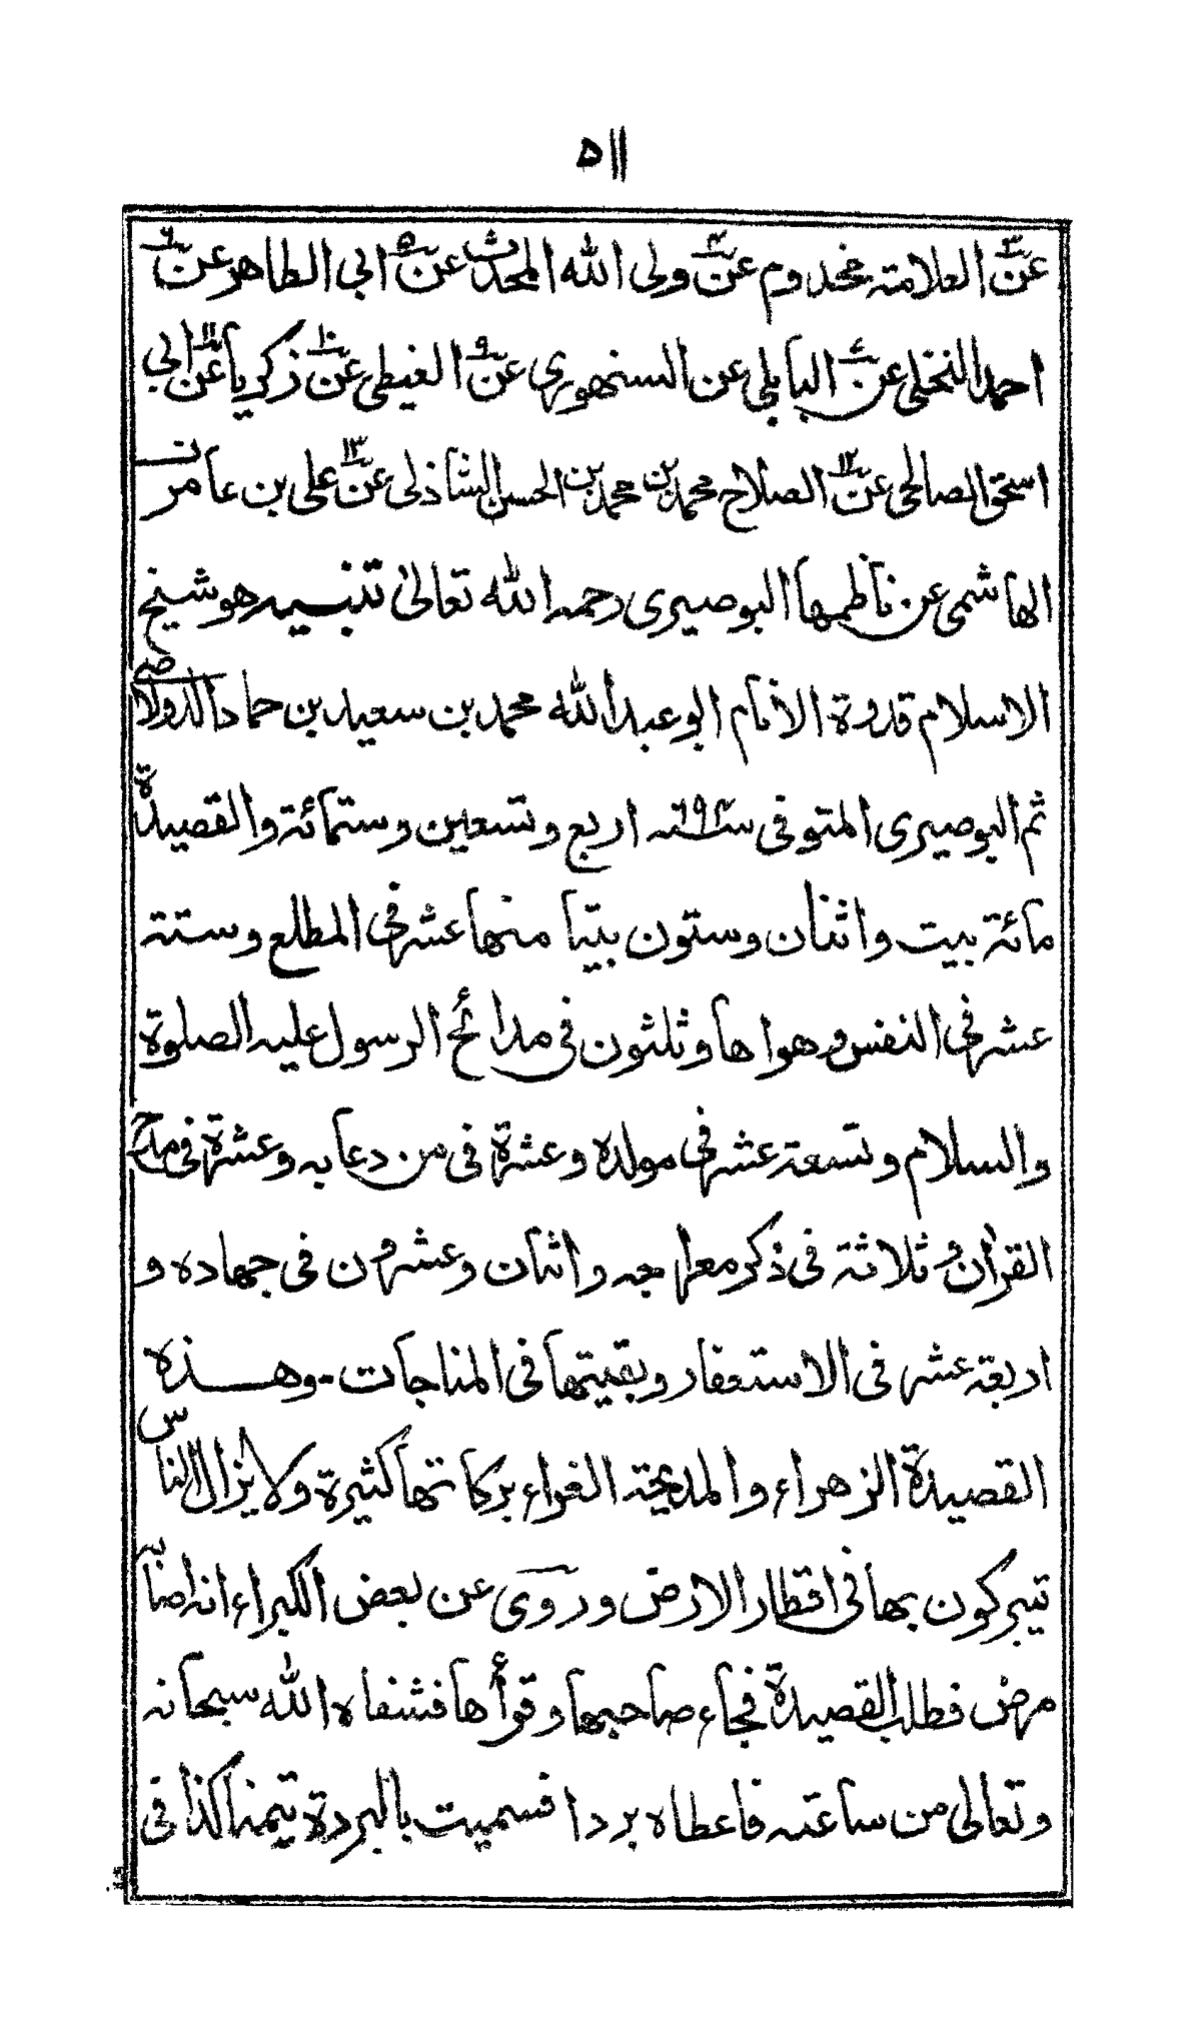 ۵۱۱
عن۳ العلامة مخدوم عن۴ ولى الله المحدث عن۵ ابى الطاهر عن۶
احمد النخلى عن۷ البابلى عن السنهورى عن۹ الغيطى عن۱۰ زكريا عن۱۱ ابى
اسحق الصالحى عن۱۲ الصلاح محمد بن محمد بن الحسن الشاذلى عن۱۳ على بن عامر ن
الهاشمى عن ناظمها البوصيرى رحمه الله تعالىٰ تنبيه هو شيخ
الاسلام قدوة الانام ابو عبد الله محمد بن سعيد بن حماد الدولاصى
ثم البوصيرى المتوفى سنة ۶۹۴ه اربع وتسعين وستمائة والقصيدة
مائة بيت واثنان وستون بيتا منها عشر فى المطلع وستة
عشر فى النفس وهواها وثلثون فى مدائح الرسول عليه الصلوة
والسلام وتسعة عشر فى مولده وعشرة فى من دعا به وعشرة فى مدح
القرآن وثلاثة فى ذكر معراجه واثنان وعشرون فى جهاده و
اربعة عشر فى الاستغفار وبقيتها فى المناجات - وهذه
القصيدة الزهراء والمديحة الغراء بركاتها كثيرة ولا يزال الناس
تيبركون بها فى اقطار الارض وروى عن بعض الكبراء انه اصابه
مرض فطلب القصيدة فجاء صاحبها وقرأها فشفاه الله سبحانه
وتعالى من ساعته فاعطاه بردا فسميت بالبردة تيمنا كذا فى